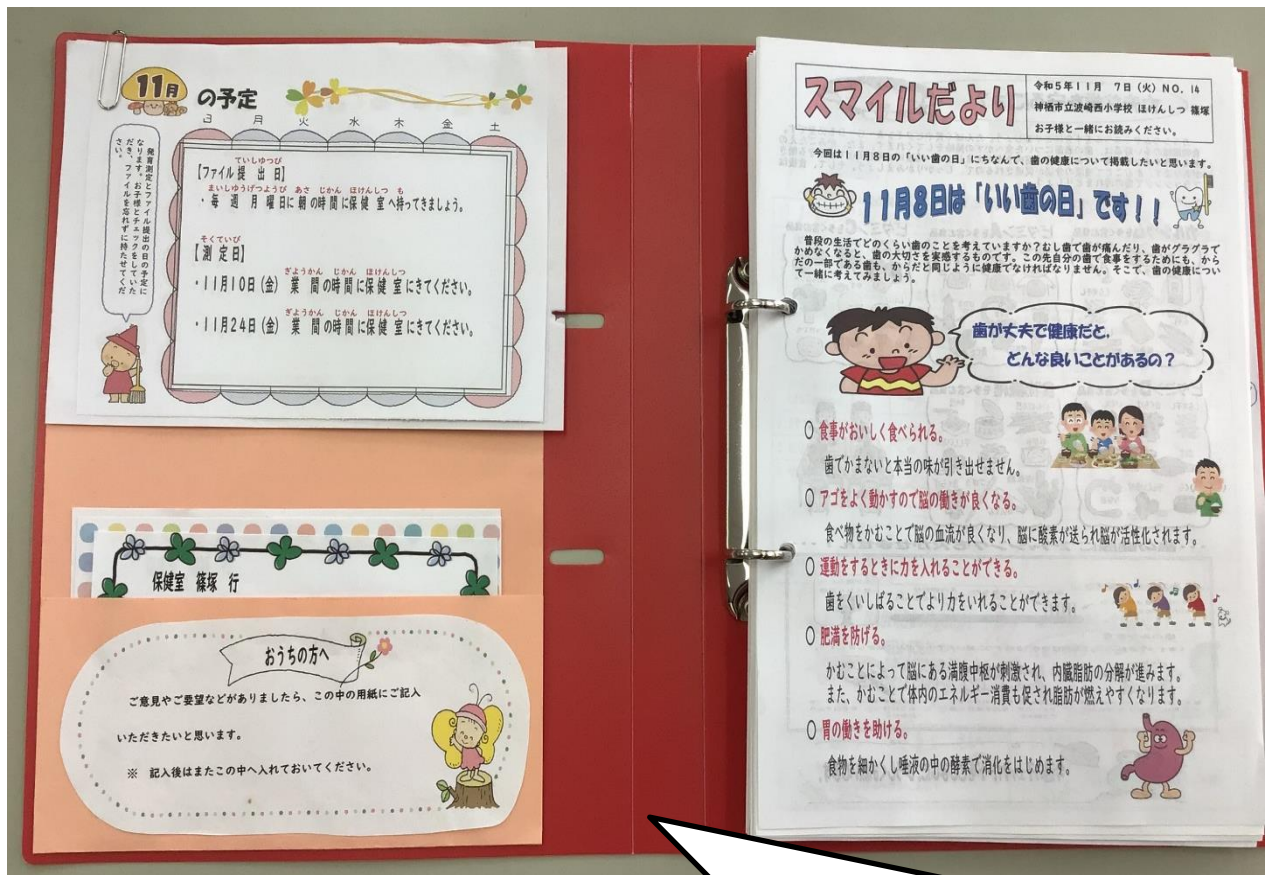 11月 の予定
日 月 火 水 木 金 土
発育測定とファイル提出の日の予定に
なります。お子様とチェックをしていた
だき、ファイルを忘れずに持たせてくだ
さい。
ていしゅつび
【ファイル提出日】
まいしゅうげつようび あさ じかん ほけんしつ も
・毎週月曜日に朝の時間に保健室へ持ってきましょう。
そくていび
【測定日】
ぎょうかん じかん ほけんしつ
・11月10日(金) 業間の時間に保健室にきてください。
ぎょうかん じかん ほけんしつ
・11月24日(金) 業間の時間に保健室にきてください。
保健室 篠塚 行
おうちの方へ
ご意見やご要望などがありましたら、この中の用紙にご記入
いただきたいと思います。
※ 記入後はまたこの中へ入れておいてください。
スマイルだより
令和5年11月 7日(火)NO.14
神栖市立波崎西小学校 ほけんしつ 篠塚
お子様と一緒にお読みください。
今回は11月8日の「いい歯の日」にちなんで、歯の健康について掲載したいと思います。
11月8日は「いい歯の日」です!!
普段の生活でどのくらい歯のことを考えていますか?むし歯で歯が痛んだり、歯がグラグラで
かめなくなると、歯の大切さを実感するものです。この先自分の歯で食事をするためにも、から
だの一部である歯も、からだと同じように健康でなければなりません。そこで、歯の健康につい
て一緒に考えてみましょう。
歯が丈夫で健康だと、
どんな良いことがあるの?
○ 食事がおいしく食べられる。
歯でかまないと本当の味が引き出せません。
○ アゴをよく動かすので脳の働きが良くなる。
食べ物をかむことで脳の血流が良くなり、脳に酸素が送られ脳が活性化されます。
○ 運動をするときに力を入れることができる。
歯をくいしばることでより力をいれることができます。
○ 肥満を防げる。
かむことによって脳にある満腹中枢が刺激され、内臓脂肪の分解が進みます。
また、かむことで体内のエネルギー消費も促され脂肪が燃えやすくなります。
○ 胃の働きを助ける。
食物を細かくし唾液の中の酵素で消化をはじめます。